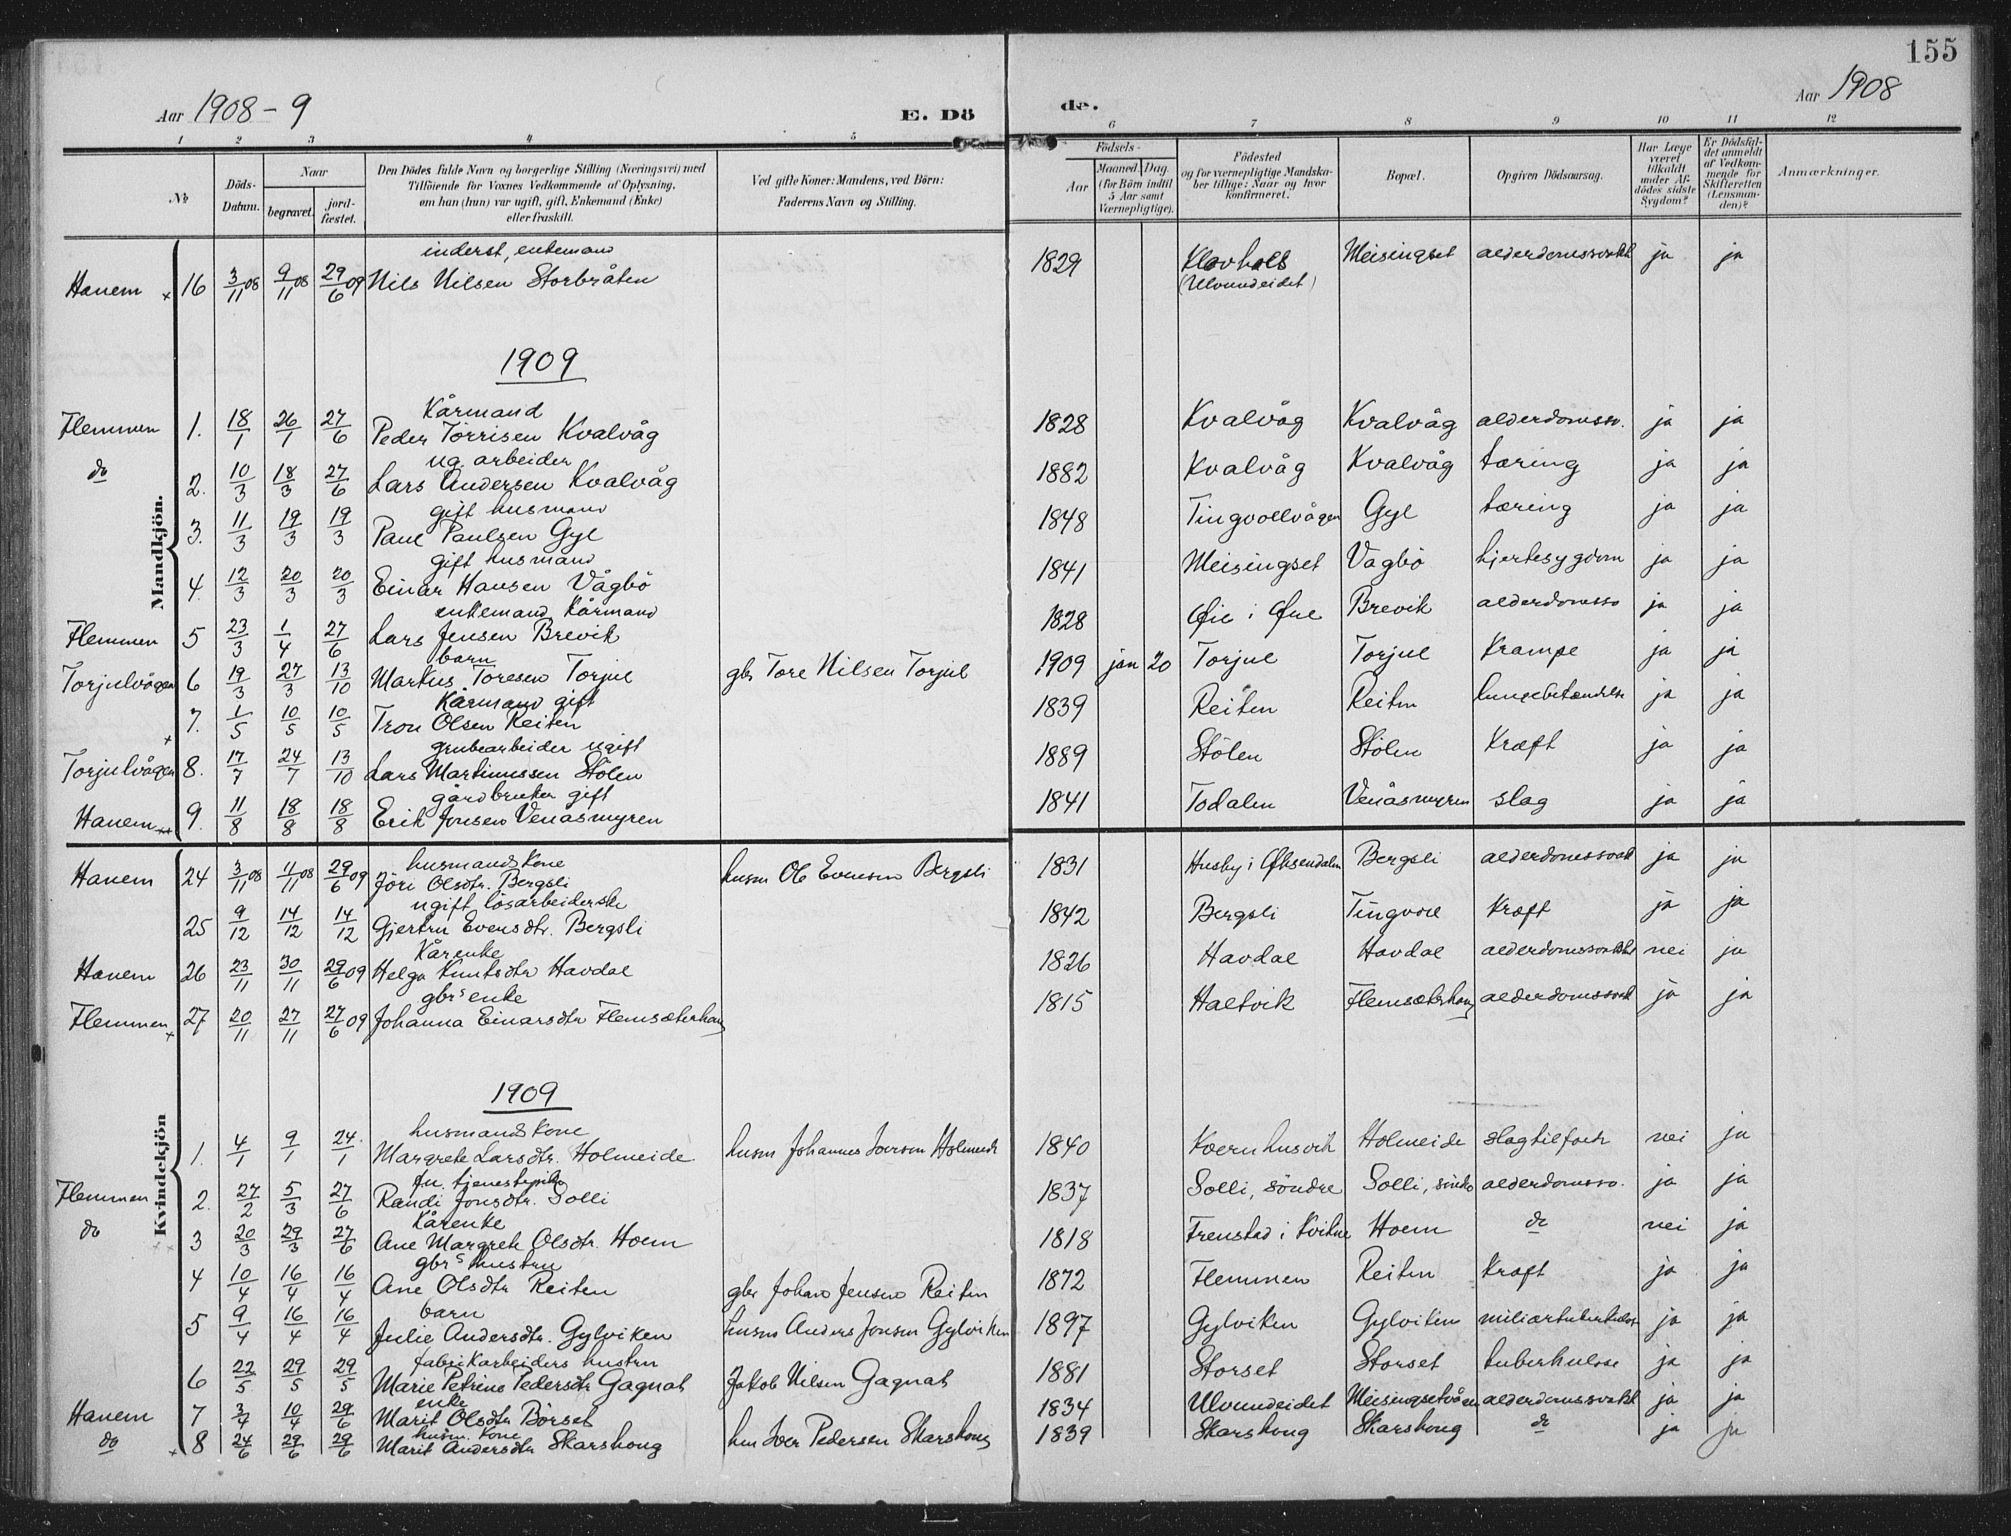 155
Aar 1908-9 E. Dö de. Aar 1908
1 2 3 4 5 6 7 8 9 10 11 12
No Döds-Datum. Naar begravet. jordfæstet. Den Dödes fulde Navn og borgerlige Stilling (Næringsvei) med Tilföiende for Voxnes Vedkommende af Oplysning, om han (hun) var ugift, gift, Enkemand (Enke) eller fraskilt. Ved gifte Koner: Mandens, ved Börn: Faderens Navn og Stilling. Födsels- Aar Maaned Dag. (for Börn indtil 5 Aar samt Værnepligtige). Födested og for værnepligtige Mandskaber tillige: Naar og hvor konfirmeret. Bopæl. Opgiven Dödsaarsag. Har Læge været tilkaldt under Afdödes sidste Sygdom? Er Dödsfaldet anmeldt af Vedkommende for Skifteretten (Lensmanden)? Anmærkninger.
Mandkjön.
inderst, enkemand
Hanem + 16 3/11 08 9/11 08 29/6 09 Nils Nilsen Storbråten 1829 (Ulvundeidet) Meisingset ja ja
1909
Kårmand
Flemmen 1. 18/1 26/1 27/6 Peder Törrisen Kvalvåg 1828 Kvalvåg Kvalvåg alderdomssv. ja ja
ug. arbeider
do 2. 10/3 18/3 27/6 Lars Andersen Kvalvåg 1882 Kvalvåg Kvalvåg tæring ja ja
gift husmand
3. 11/3 19/3 19/3 Paul Paulsen Gyl 1848 Tingvollvågen Gyl tæring ja ja
gift husmand
4. 12/3 20/3 20/3 Einar Hansen Vågbö 1841 Meisingset Vagbö hjertesygdom ja ja
enkemand Kårmand
Flemmen 5 23/3 1/4 27/6 Lars Jensen Brevik 1828 Öie i Öre Brevik alderdomssv ja ja
barn
Torjulvågen 6 19/3 27/3 13/10 Markus Toresen Torjul gbr Tore Nilsen Torjul 1909 jan 20 Torjul Torjul Krampe ja ja
Kårmand gift
+ 7. 1/5 10/5 10/5 Tron Olsen Reiten 1839 Reiten Reiten lungebetændelse ja ja
grubearbeider ugift
Torjulvågen 8. 17/7 24/7 13/10 Lars Martinussen Stölen 1889 Stölen Stölen Kræft ja ja
gårdbruker gift
Hanem ++ 9. 11/8 18/8 18/8 Erik Jonsen Venåsmyren 1841 Todalen Venåsmyren slag ja ja
Kvindekjön
husmandskone
Hanem 24 3/11 08 11/11 08 29/6 09 Jöri Olsdtr. Bergsli husm Ole Evensen Bergsli 1831 Husby i Öksendalen Bergsli alderdomssvakh ja ja
ugift lösarbeiderske
25 9/12 14/12 14/12 Gjertru Evensdtr. Bergsli 1842 Bergsli Tingvoll Kræft ja ja
Kårenke
Hanem 26 23/11 30/11 29/6 09 Helga Knutsdtr Havdal 1826 Havdal Havdal alderdomssvakhet nei ja
gbrs enke
Flemmen + 27 20/11 27/11 27/6 09 Johanna Einarsdtr Flemsæterhaug 1815 Haltvik Flemsæterhaug alderdomssvakh ja ja
1909
husmandskone
1. 4/1 9/1 24/1 Margrete Larsdtr. Holmeide husm Johannes Iversen Holmeide 1840 Kvernhusvik Holmeide slagtilfælde nei ja
fv. tjenestepike
Flemmen 2. 27/2 5/3 27/6 Randi Jonsdtr. Solli 1837 Solli, söndre Solli, söndre alderdomssv. ja ja
Kårenke
do + 3 20/3 29/3 27/6 Ane Margrete Olsdtr. Hoem 1818 Frenstad i Kvikne Hoem do nei ja
gbrs hustru
4 10/4 16/4 16/4 Ane Olsdtr Reiten gbr Johan Jensen Reiten 1872 Flemmen Reiten Kræft ja ja
barn
5 9/4 16/4 16/4 Julie Andersdtr. Gylviken husm Anders Jonsen Gylviken 1897 Gylviken Gylviken miliærtuberkulose ja ja
fabrikarbeiders hustru
6 22/5 29/5 29/5 Marie Petrine Pedersdtr Gagnat Jakob Nilsen Gagnat 1881 Storset Storset tuberkulose ja ja
enke
Hanem 7 3/4 10/4 29/6 Marit Olsdtr Börset 1834 Ulvundeidet Meisingsetvågen alderdomssvakh ja ja
husm. kone
do + 8 24/6 29/6 29/6 Marit Andersdtr Skarshaug Iver Pedersen Skarshaug 1839 Skarshaug Skarshaug do ja ja